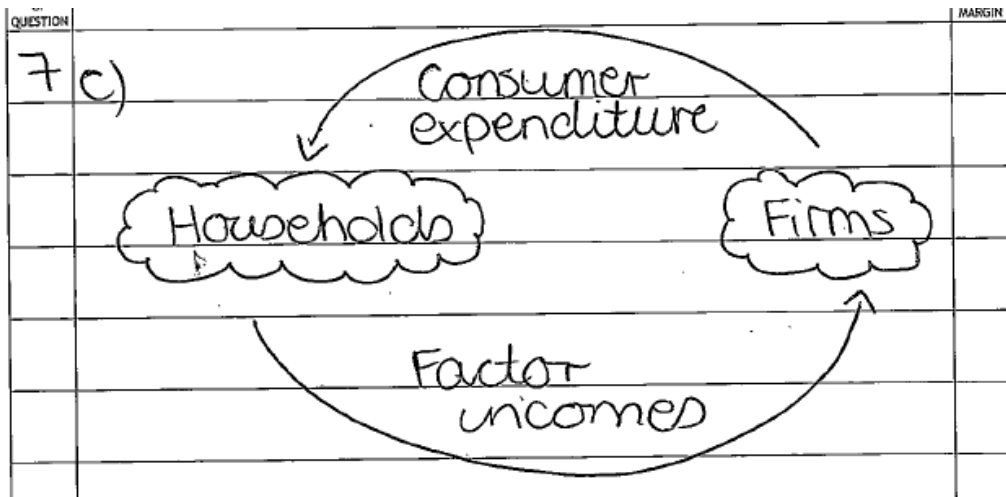 QUESTION
MARGIN
7 c)
Consumer
expenditure
Households
Firms
Factor
incomes